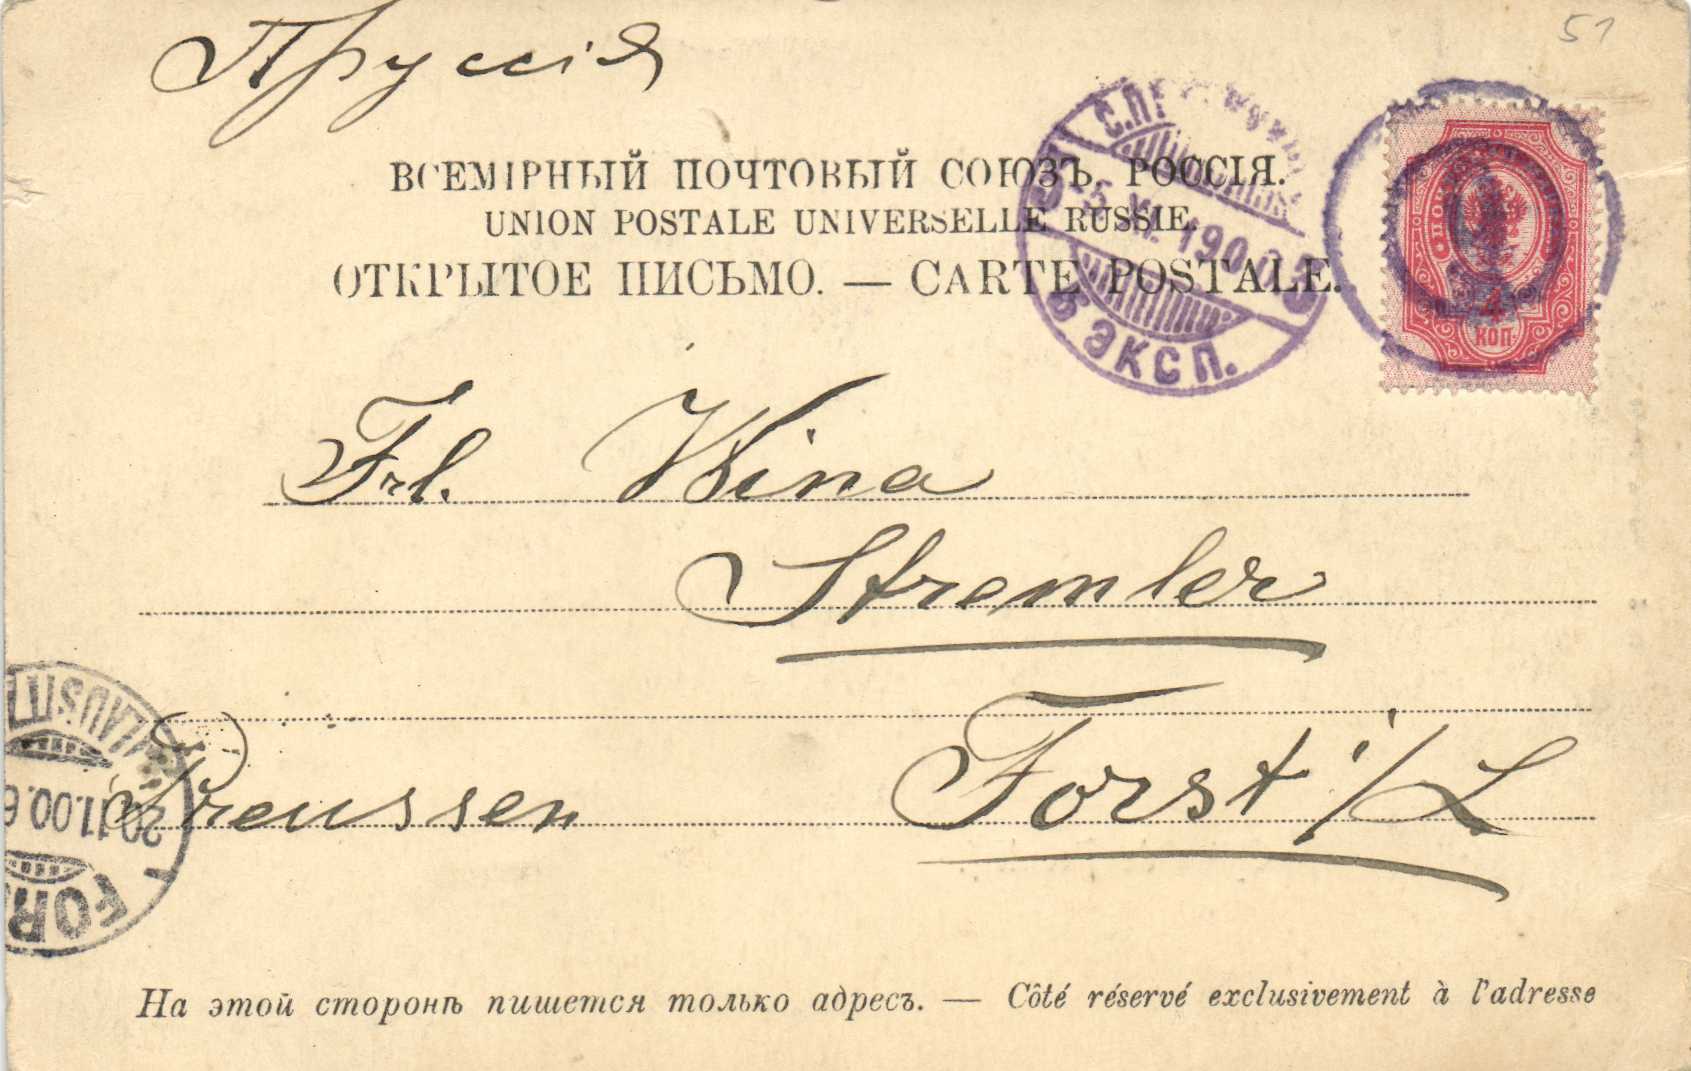 51
Пруссія
ВСЕМІРНЫЙ ПОЧТОВЫЙ СОЮЗЪ. РОССІЯ.
UNION POSTALE UNIVERSELLE RUSSIE.
ОТКРЫТОЕ ПИСЬМО. — CARTE POSTALE.
С.П.
XI. 190
5 ЭКСП.
4
КОП.
Frl. Wina
Stremler
Preussen Forst i/L
LAUSITZ
20.11.00.6
FOR
На этой сторонѣ пишется только адресъ. — Côté réservé exclusivement à l'adresse